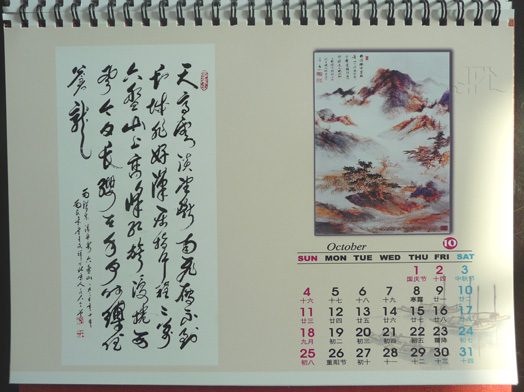 天高雲淡望斷南飛雁不到
長城非好漢屈指行程二萬
六盤山上高峰紅旗漫捲西
風今日長纓在手何時縛住
蒼龍
October 10
SUN MON TUE WED THU FRI SAT
1 2 3
国庆节 十四 中秋节
4 5 6 7 8 9 10
十六 十七 十八 十九 寒露 廿一 廿二
11 12 13 14 15 16 17
廿三 廿四 廿五 廿六 廿七 廿八 廿九
18 19 20 21 22 23 24
九月 初二 初三 初四 初五 霜降 初七
25 26 27 28 29 30 31
初八 重阳节 初十 十一 十二 十三 十四